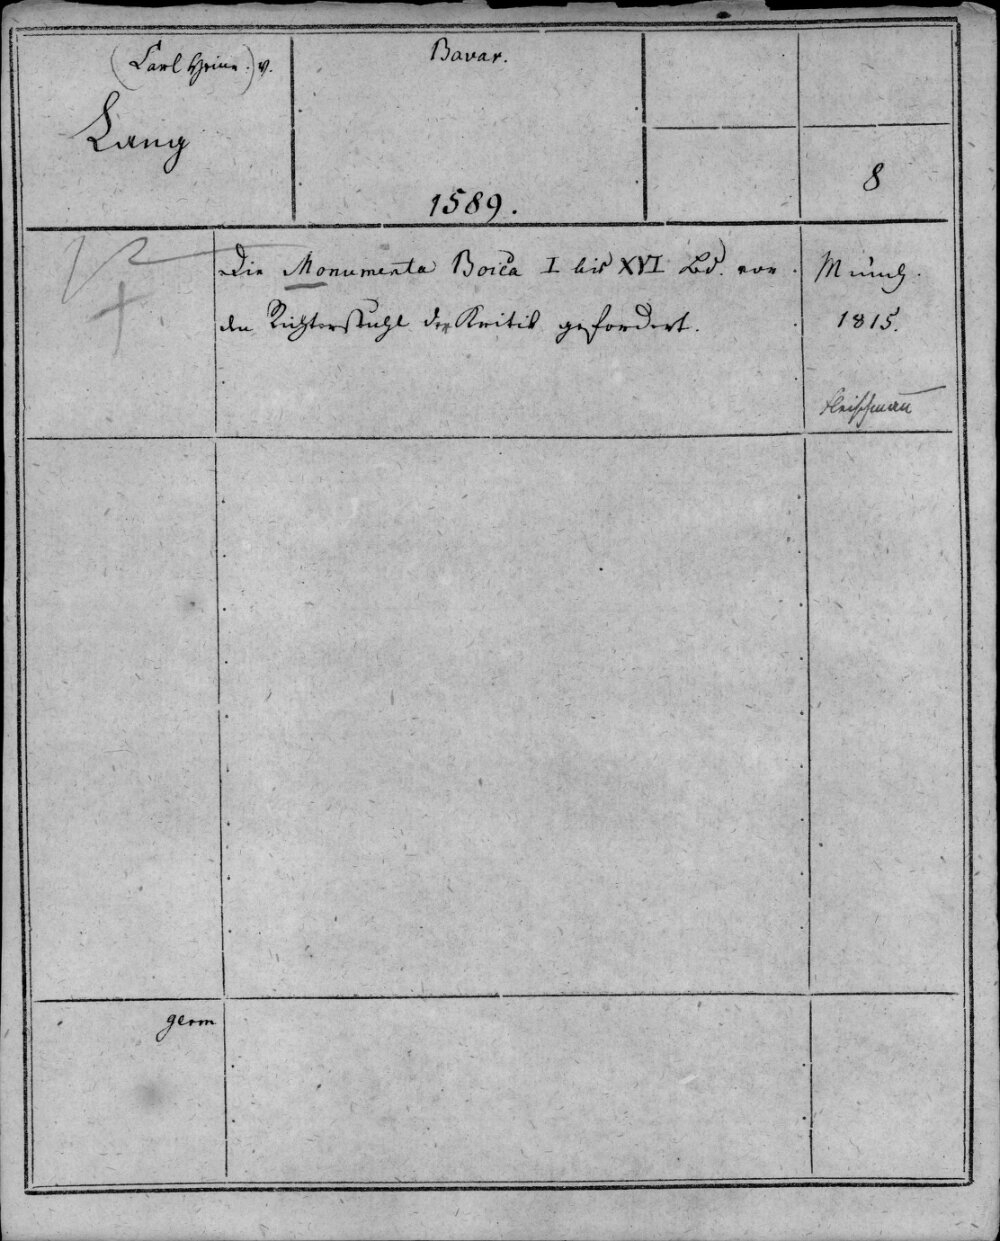 (Carl Heinr.) v.
Lang
Bavar.
1589.
8
Die Monumenta Boica I bis XVI Bd. vor
den Richterstuhl der Kritik gefordert.
Münch.
1815.
Fleischmañ
germ